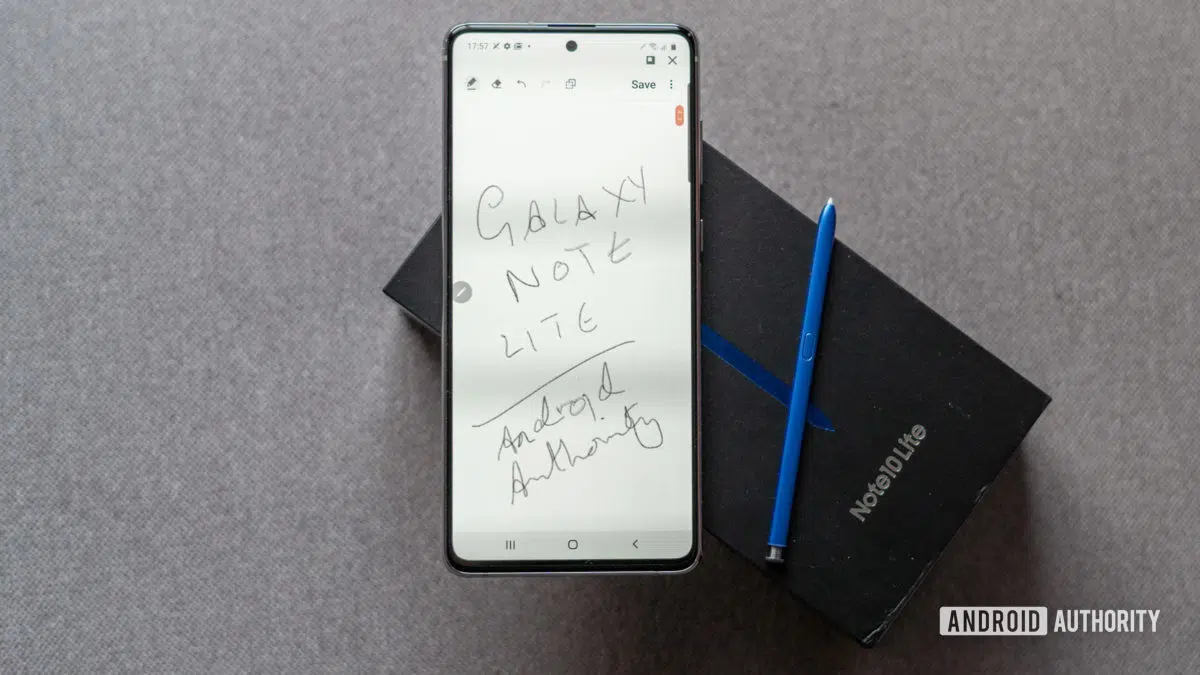 17:57
Save
GALAXY
NOTE
LITE
Android
Authority
Note10 Lite
ANDROID AUTHORITY